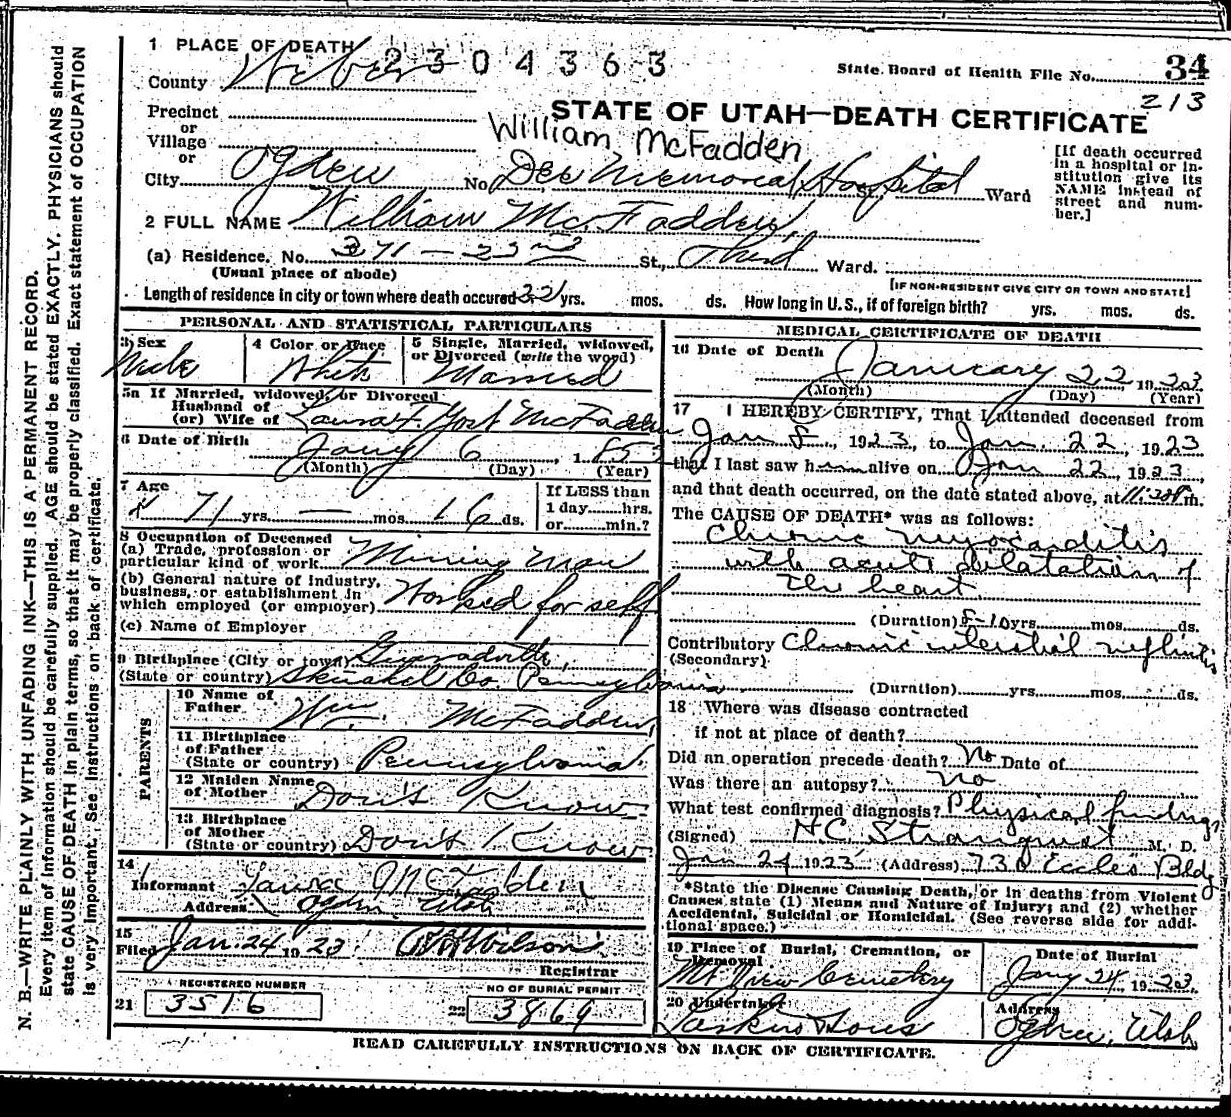 1 PLACE OF DEATH 2304363
State Board of Health File No. 34
County Weber
213
Precinct
or
STATE OF UTAH—DEATH CERTIFICATE
William McFadden
Village
or
City Ogden No. Dee Memorial Hospital St., Ward
[If death occurred
in a hospital or in-
stitution give its
NAME instead of
street and num-
ber.]
2 FULL NAME William McFadden
(a) Residence. No. 371 - 23rd St., Third Ward.
(Usual place of abode)
[IF NON-RESIDENT GIVE CITY OR TOWN AND STATE]
Length of residence in city or town where death occured 32 yrs. mos. ds. How long in U.S., if of foreign birth? yrs. mos. ds.
PERSONAL AND STATISTICAL PARTICULARS
3 Sex
Male
4 Color or Race
White
5 Single, Married, widowed,
or Divorced (write the word)
Married
5a If Married, widowed, or Divorced
Husband of
(or) Wife of Laura F. Yost McFadden
6 Date of Birth Jany 6, 185
(Month) (Day) (Year)
7 Age
71 yrs. — mos. 16 ds.
If LESS than
1 day hrs.
or min.?
8 Occupation of Deceased
(a) Trade, profession or
particular kind of work Mining Man
(b) General nature of Industry,
business, or establishment in
which employed (or employer) Worked for self
(c) Name of Employer
9 Birthplace (City or town)
(State or country) Co. Pennsylvania
PARENTS
10 Name of
Father Wm. McFadden
11 Birthplace
of Father
(State or country) Pennsylvania
12 Maiden Name
of Mother Don't Know
13 Birthplace
of Mother
(State or country) Don't Know
14
Informant Laura McFadden
Address Ogden, Utah
15
Filed Jan. 24 1923. Wilson
Registrar
REGISTERED NUMBER
21 3516
NO OF BURIAL PERMIT
22 3869
MEDICAL CERTIFICATE OF DEATH
16 Date of Death
January 22 1923
(Month) (Day) (Year)
17 I HEREBY CERTIFY, That I attended deceased from
Jan 8, 1923, to Jan. 22, 1923
that I last saw him alive on Jan 22, 1923
and that death occurred, on the date stated above, at m.
The CAUSE OF DEATH* was as follows:
Chronic myocarditis
with acute dilatation of
the heart
(Duration) 8-10 yrs. mos. ds.
Contributory Chronic interstitial nephritis
(Secondary)
(Duration) yrs. mos. ds.
18 Where was disease contracted
if not at place of death?
Did an operation precede death? No Date of
Was there an autopsy? No
What test confirmed diagnosis? Physical findings
(Signed) H.C. Stranquist M. D.
Jan 24 1923 (Address) 730 Eccles Bldg
*State the Disease Causing Death, or in deaths from Violent
Causes state (1) Means and Nature of Injury; and (2) whether
Accidental, Suicidal or Homicidal. (See reverse side for addi-
tional space.)
19 Place of Burial, Cremation, or
Removal
Mt View Cemetery
Date of Burial
Jany 24 1923
20 Undertaker
Larkin & Sons
Address
Ogden, Utah
READ CAREFULLY INSTRUCTIONS ON BACK OF CERTIFICATE.
N. B.—WRITE PLAINLY WITH UNFADING INK—THIS IS A PERMANENT RECORD.
Every item of information should be carefully supplied. AGE should be stated EXACTLY. PHYSICIANS should
state CAUSE OF DEATH in plain terms, so that it may be properly classified. Exact statement of OCCUPATION
is very important. See instructions on back of certificate.